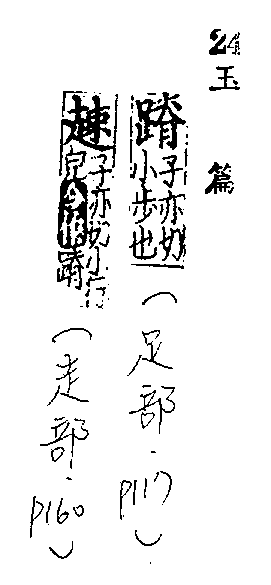 24玉篇
蹐子亦切小步也
(足部·P117)
趚子亦切小行
皃今作蹐
(走部·P160)